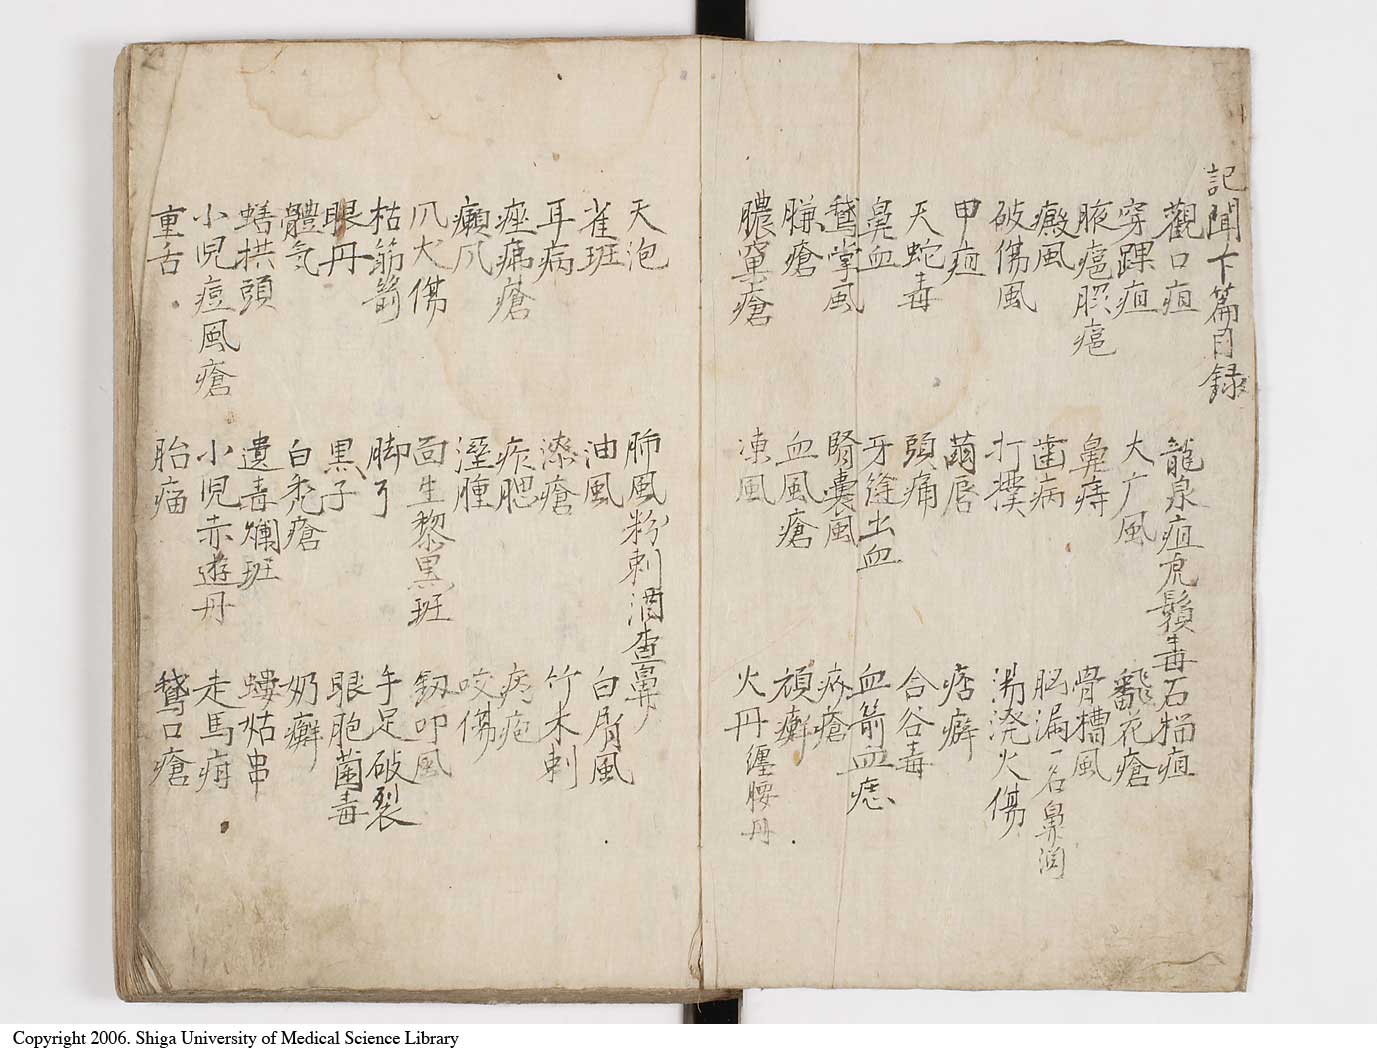 記聞下篇目録
觀口疽 龍泉疽虎鬚毒 石榴疽
穿踝疽 大广風 翻花瘡
鼻痔 骨槽風
癜風 歯病 脳漏一名鼻渕
破傷風 打撲 湯澆火傷
甲疽 繭唇 痞癖
天蛇毒 頭痛 合谷毒
鼻血 牙縫出血 血箭血痣
鵞掌風 腎囊風 疥瘡
臁瘡 血風瘡 頑癬
膿窠瘡 凍風 火丹纏腰丹
天泡 肺風粉刺酒查鼻
雀班 油風 白屑風
耳病 漆瘡 竹木刺
痤痱瘡
溼腫 咬傷
犬傷 面生黎黒班
枯筋箭 脚丫 手足破裂
眼丹 黒子 眼胞菌毒
體気 白禿瘡 奶癬
蟮拱頭 遺毒爛班 螻蛄串
小児痘風瘡 小児赤遊丹 走馬疳
重舌 胎瘤 鵞口瘡
Copyright 2006. Shiga University of Medical Science Library